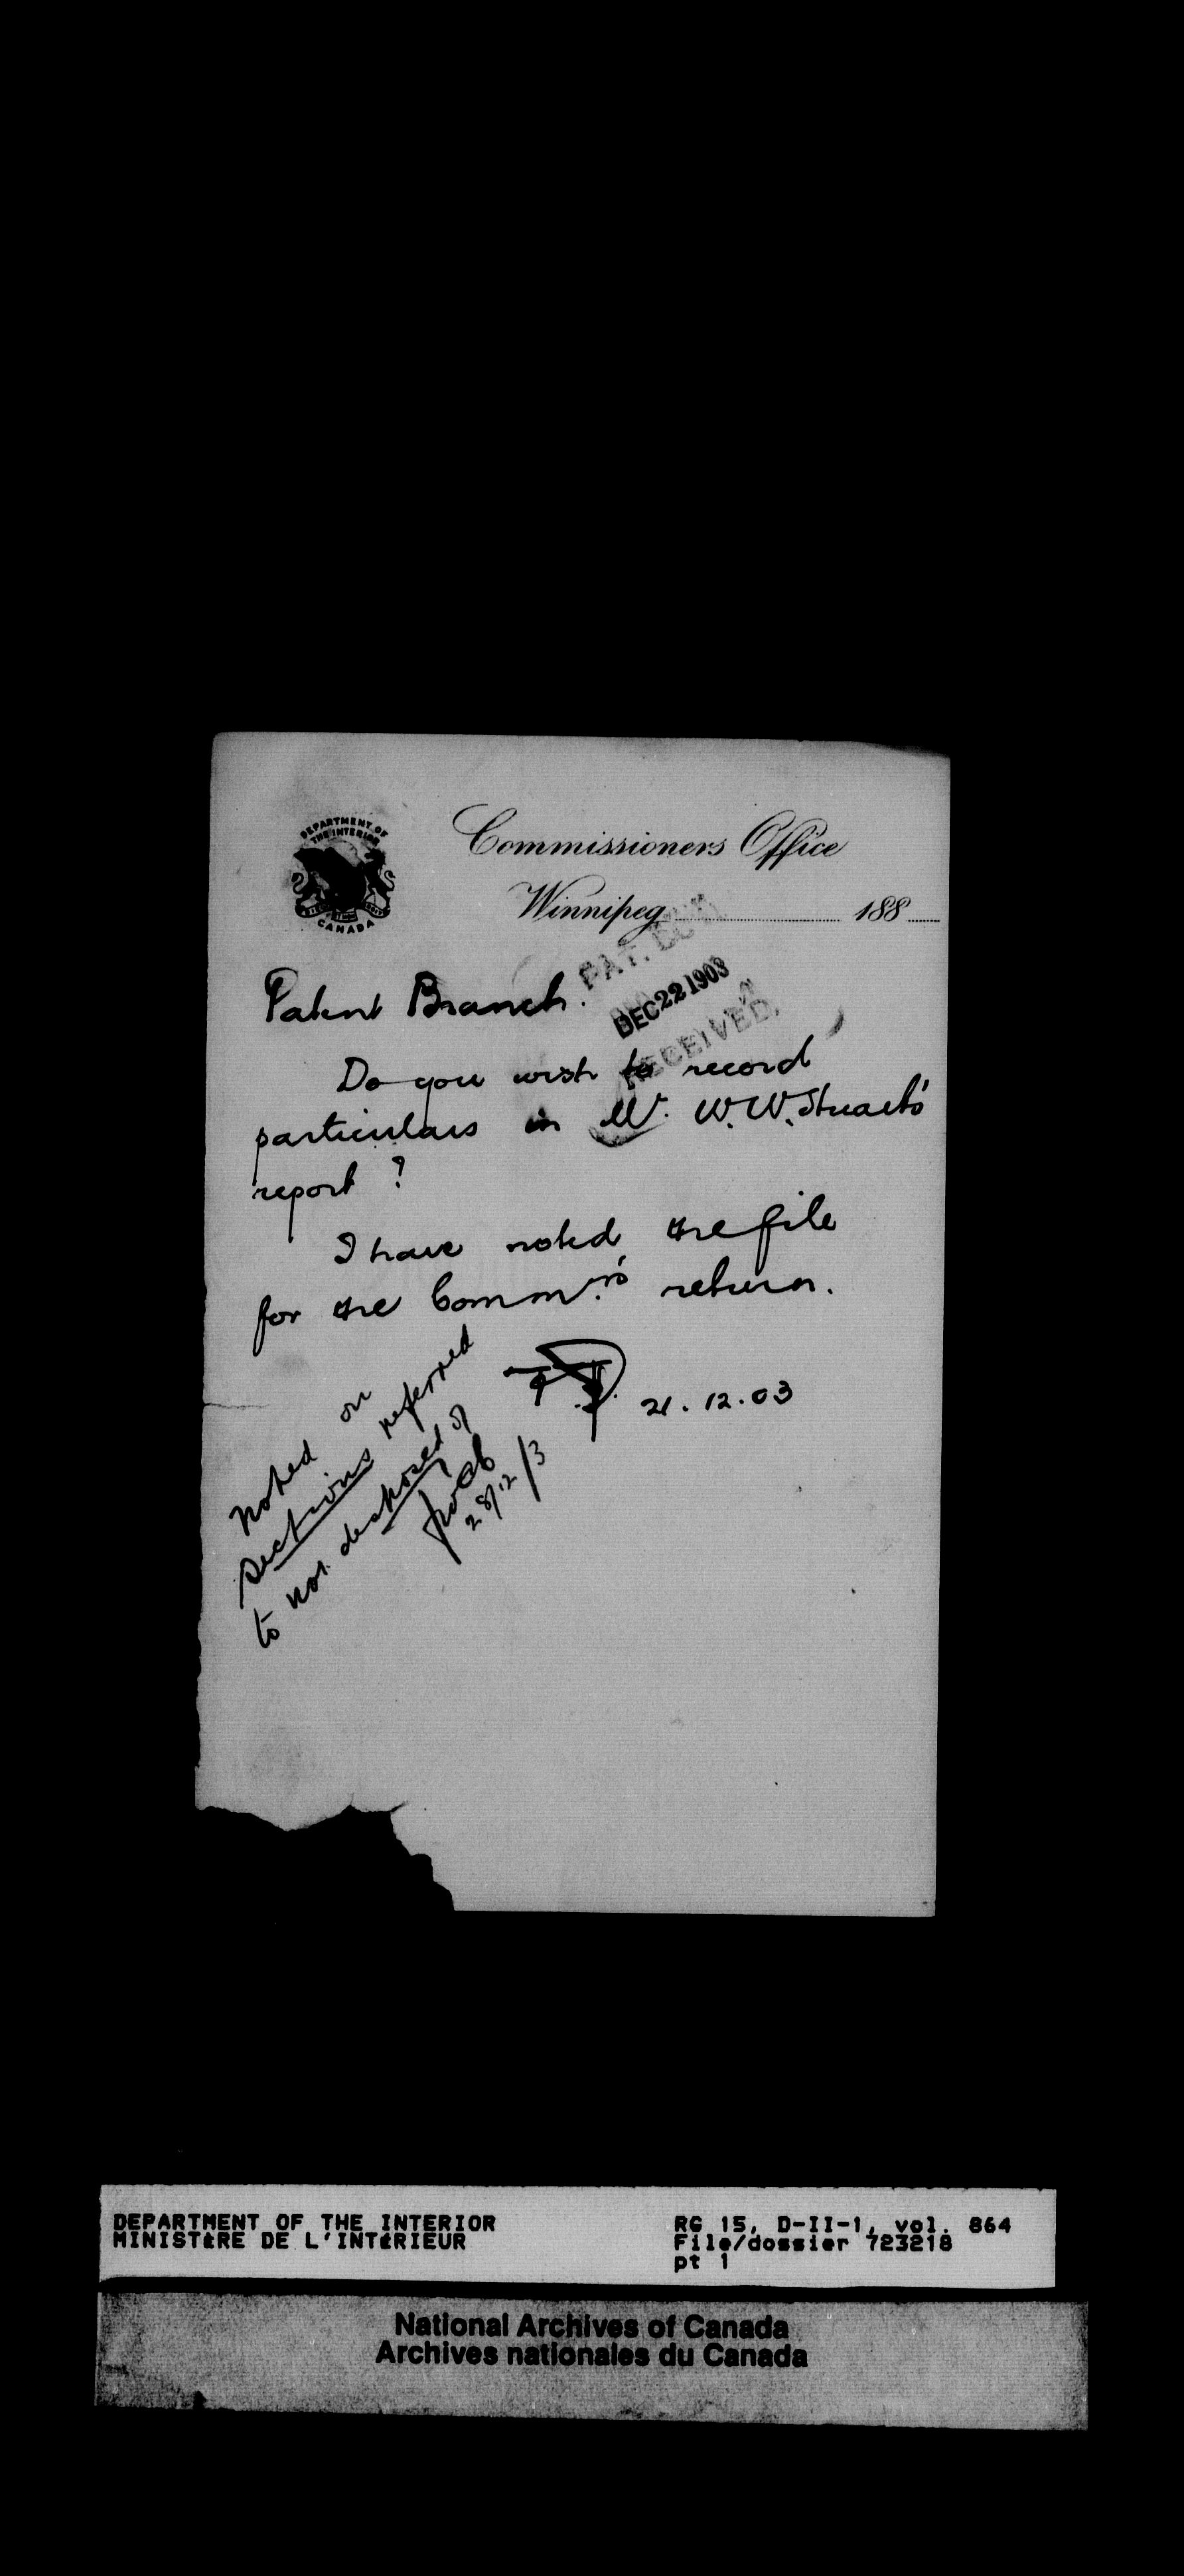 DEPARTMENT OF
THE INTERIOR
CANADA
Commissioners Office
Winnipeg 188
PAT.
DEC 22 1903
RECEIVED.
Patent Branch.
Do you wish to record
particulars in Mr. W. W. Stuart's
report?
I have noted the file
for the Commr.'s return.
21.12.03
Noted on
sections referred
to not disposed of
28/12/3
DEPARTMENT OF THE INTERIOR
MINISTÈRE DE L'INTÉRIEUR
RG 15, D-II-1, vol. 864
File/dossier 723218
pt 1
National Archives of Canada
Archives nationales du Canada